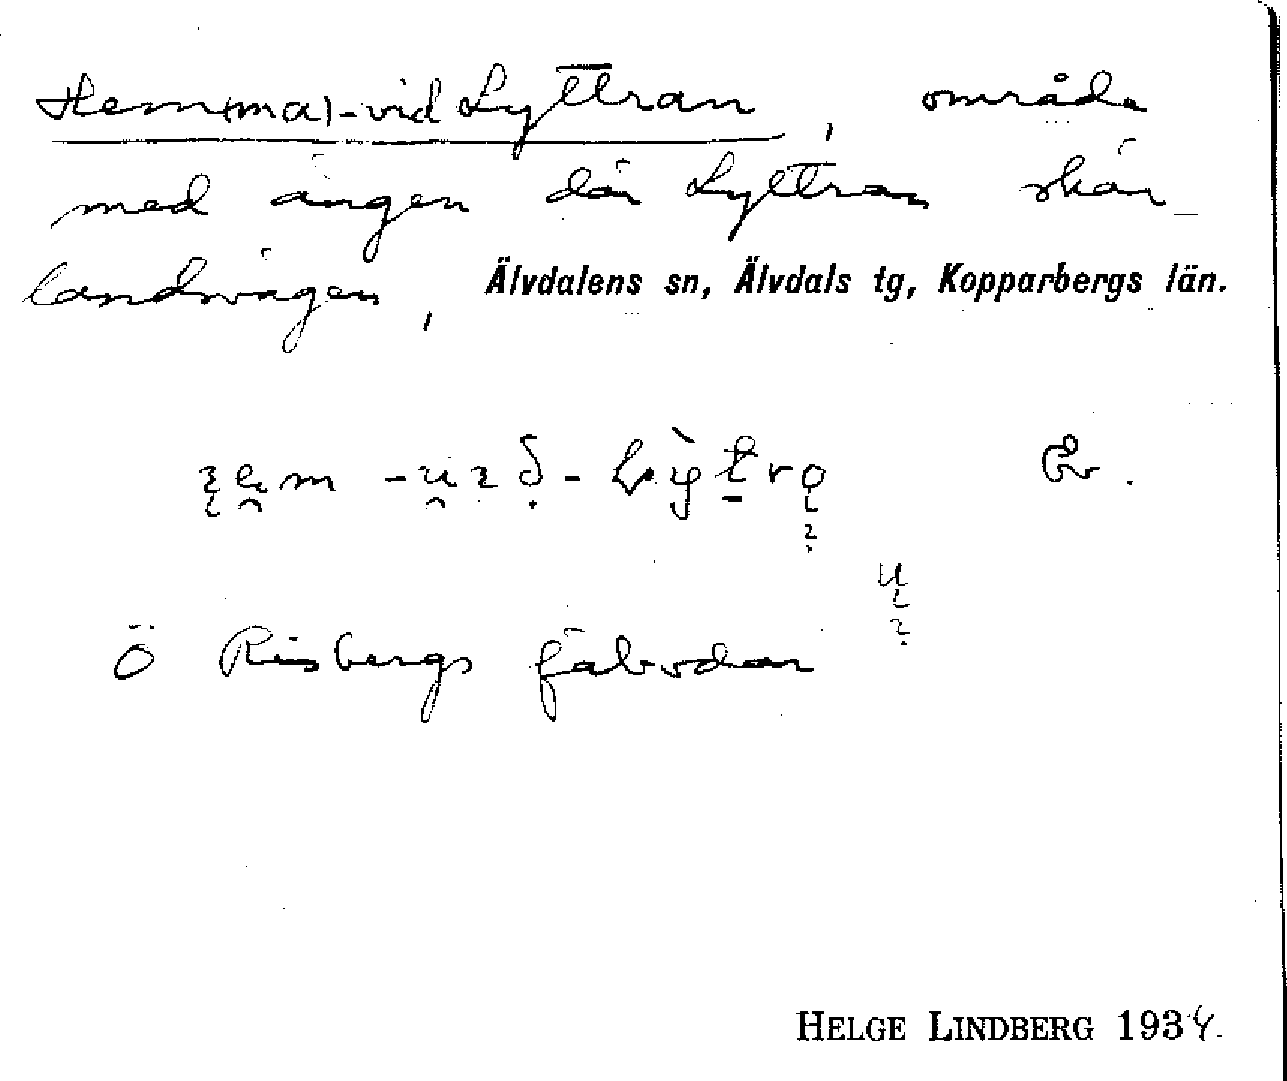 Hem(ma)-vid Lyttran, område
med ängen där Lyttran skär
landsvägen, Älvdalens sn, Älvdals tg, Kopparbergs län.
Ö Risbergs fäbodar
HELGE LINDBERG 1934.